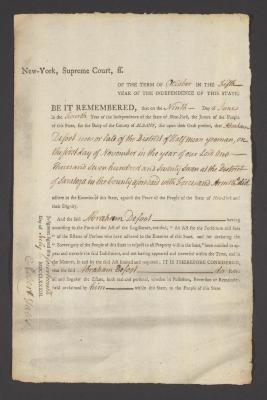 New-York, Supreme Court, ss.
OF THE TERM OF October IN THE Fifth
YEAR OF THE INDEPENDENCE OF THIS STATE;
BE IT REMEMBERED, that on the Ninth Day of June
in the Seventh Year of the Independence of the State of New-York, the Jurors of the People
of this State, for the Body of the County of ALBANY, did upon their Oath present, that Abraham
now or late of the District of Half moon yeoman, on
the first day of November in the year of our Lord one
Thousand seven hundred and Seventy seven at the District
of Saratoga in the County aforesaid with force and Arms &c did
adhere to the Enemies of this State, against the Peace of the People of the State of New-York and
their Dignity.
And the said Abraham having
according to the Form of the Act of the Legislature, entitled, "An Act for the Forfeiture and Sale
"of the Estates of Persons who have adhered to the Enemies of this State, and for declaring the
"Sovereignty of the People of this State in respect to all Property within the same," been notified to ap-
pear and traverse the said Indictment, and not having appeared and traversed within the Time, and in
the Manner, in and by the said Act limited and required: IT IS THEREFORE CONSIDERED,
that the said Abraham do forfeit
all and singular the Estate, both real and personal, whether in Possession, Reversion or Remainder,
held or claimed by him within this State, to the People of this State.
Judgment
Day of MDCCLXXXIII.